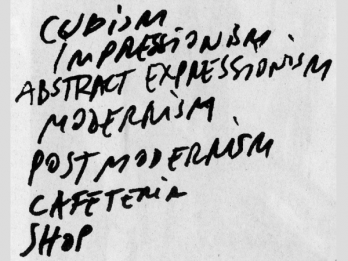 CUBISM
IMPRESSIONISM.
ABSTRACT EXPRESSIONISM
MODERNISM
POSTMODERNISM
CAFETERIA
SHOP